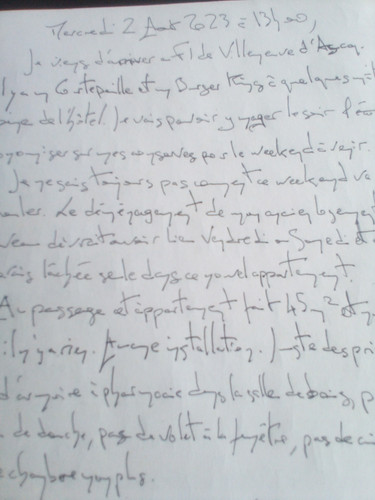 Mercredi 2 Août 2023 à 13h00,
Je viens d'arriver au F1 de Villeneuve d'Ascq.
Il y a un Courtepaille et un Burger King à quelques
de l'hôtel. Je vais pouvoir y manger le soir
économiser sur mes conserves pour le weekend à venir.
Je ne sais toujours pas comment ce weekend va
Le déménagement de mon ancien logement
devrait avoir lieu Vendredi ou Samedi et
lâchée seule dans ce nouvel appartement.
Au passage cet appartement fait 45m² et
il n'y a rien. Aucune installation. Juste des
d'armoire à pharmacie dans la salle de bains,
de douche, pas de volet à la fenêtre, pas de
chambre non plus.